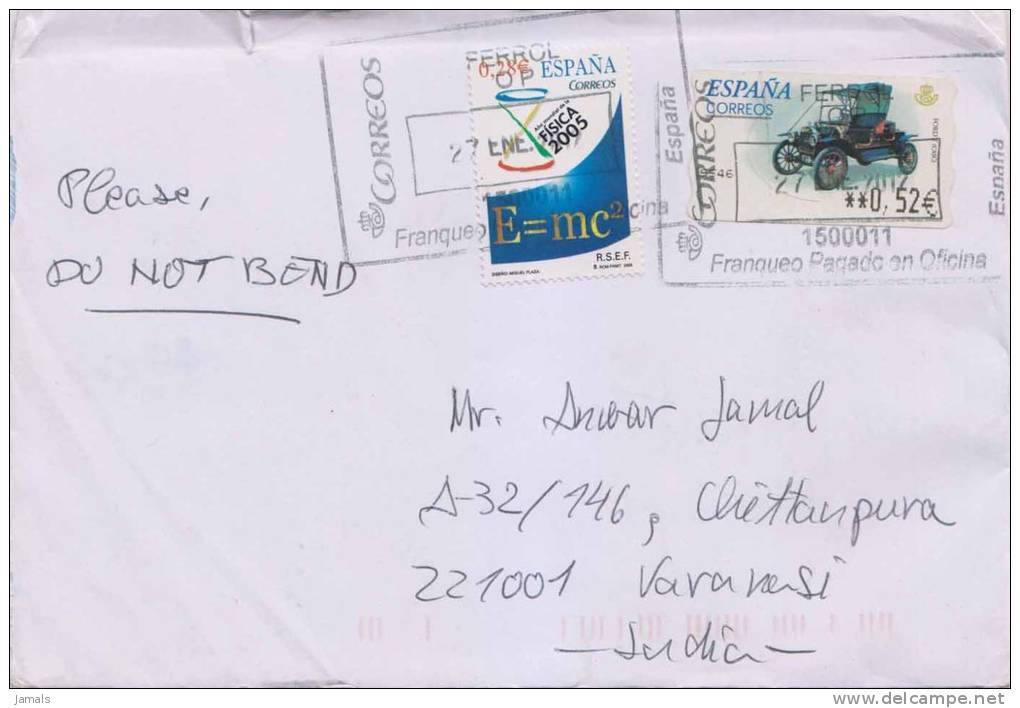 Please,
DO NOT BEND
CORREOS
FERROL
O P
27 ENE.
1500011
Franqueo
cina
0,28€ ESPAÑA
CORREOS
Año mundial de la
FÍSICA
2005
E=mc²
R.S.E.F.
DISEÑO: MIGUEL PLAZA
España
CORREOS
ESPAÑA
CORREOS
FERROL
46
**0,52€
1500011
Franqueo Pagado en Oficina
España
Mr. Anwar Jamal
A-32/146, Chittanpura
221001 Varanasi
—India—
jamals
www.delcampe.net